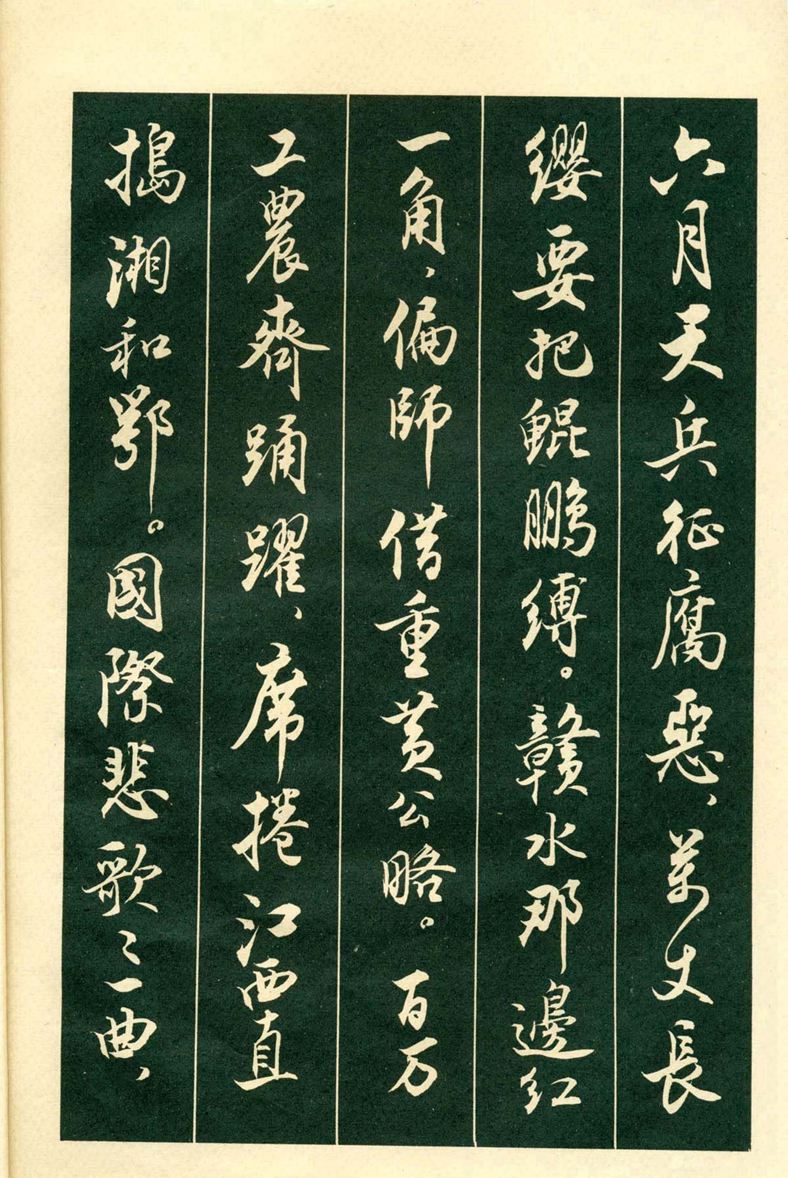 六月天兵征腐惡、萬丈長
纓要把鯤鵬縛。贛水那邊红
一角、偏師借重黄公略。百万
工農齊踊躍、席捲江西直
搗湘和鄂。國際悲歌〻一曲、